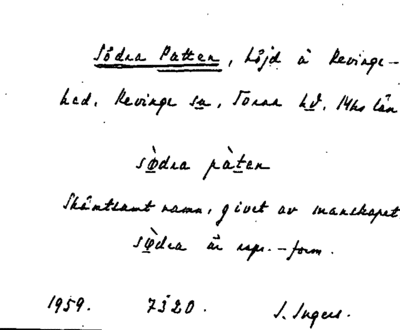 Södra Patten, höjd å Revinge-
hed. Revinge sn, Torna hd, Mhs län
sø̀dra pàten
Skämtsamt namn, givet av manskapet
sø̀dra är repr.-form.
1959. 7320. I. Ingers.